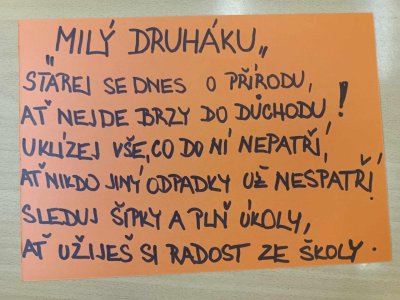 „MILÝ DRUHÁKU„
STAREJ SE DNES O PŘÍRODU,
AŤ NEJDE BRZY DO DŮCHODU!
UKLÍZEJ VŠE, CO DO NÍ NEPATŘÍ,
AŤ NIKDO JINÝ ODPADKY UŽ NESPATŘÍ!
SLEDUJ ŠIPKY A PLŇ ÚKOLY,
AŤ UŽIJEŠ SI RADOST ZE ŠKOLY.